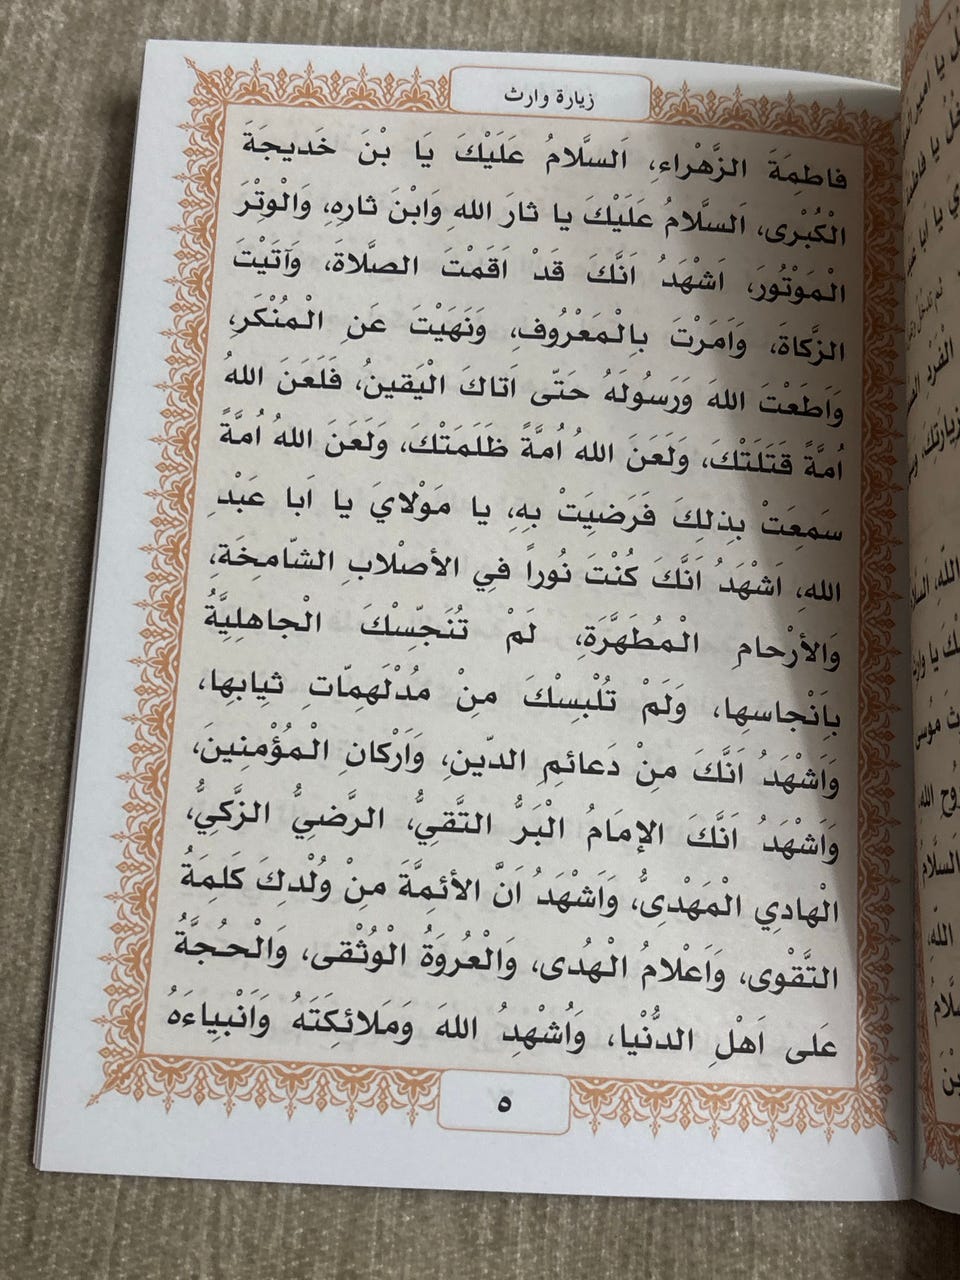 زيارة وارث
فاطِمَةَ الزَّهْراءِ، اَلسَّلامُ عَلَيْكَ يَا بْنَ خَديجَةَ
الْكُبْرى، اَلسَّلامُ عَلَيْكَ يا ثارَ اللهِ وَابْنَ ثارِهِ، وَالْوِتْرَ
الْمَوْتُورَ، اَشْهَدُ اَنَّكَ قَدْ اَقَمْتَ الصَّلاةَ، وَآتَيْتَ
الزَّكاةَ، وَاَمَرْتَ بِالْمَعْرُوفِ، وَنَهَيْتَ عَنِ الْمُنْكَرِ،
وَاَطَعْتَ اللهَ وَرَسُولَهُ حَتّى اَتاكَ الْيَقينُ، فَلَعَنَ اللهُ
اُمَّةً قَتَلَتْكَ، وَلَعَنَ اللهُ اُمَّةً ظَلَمَتْكَ، وَلَعَنَ اللهُ اُمَّةً
سَمِعَتْ بِذلِكَ فَرَضِيَتْ بِهِ، يا مَوْلايَ يا اَبا عَبْدِ
اللهِ، اَشْهَدُ اَنَّكَ كُنْتَ نُوراً في الأصْلابِ الشّامِخَةِ،
وَالأرْحامِ الْمُطَهَّرَةِ، لَمْ تُنَجِّسْكَ الْجاهِلِيَّةُ
بِاَنْجاسِها، وَلَمْ تُلْبِسْكَ مِنْ مُدْلَهِمّاتِ ثِيابِها،
وَاَشْهَدُ اَنَّكَ مِنْ دَعائِمِ الدّينِ، وَاَرْكانِ الْمُؤْمِنينَ،
وَاَشْهَدُ اَنَّكَ الإمَامُ الْبَرُّ التَّقِيُّ، الرَّضِيُّ الزَّكِيُّ،
الْهادِي الْمَهْدِىُّ، وَاَشْهَدُ اَنَّ الأئِمَّةَ مِنْ وُلْدِكَ كَلِمَةُ
التَّقْوى، وَاَعْلامُ الْهُدى، وَالْعُروَةُ الْوُثْقى، وَالْحُجَّةُ
عَلى اَهْلِ الدُّنْيا، وَاُشْهِدُ اللهَ وَمَلائِكَتَهُ وَاَنْبِياءَهُ
٥